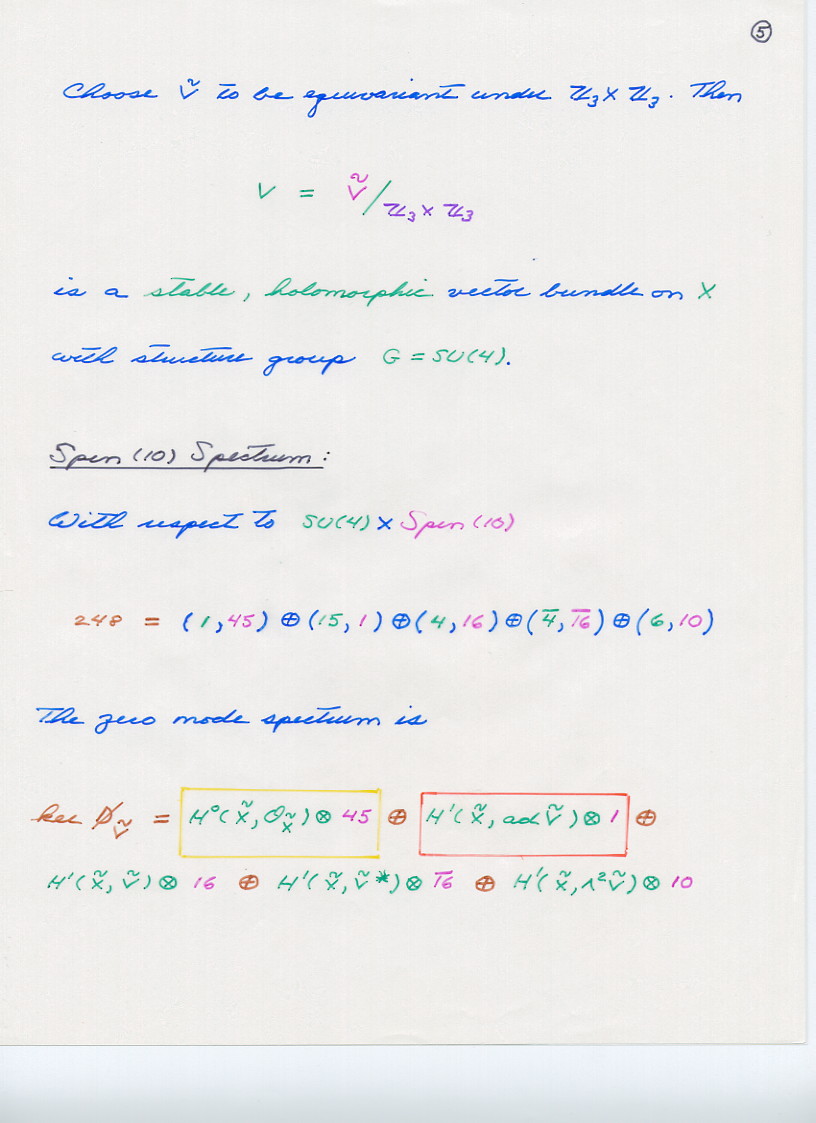 ⑤
Choose Ṽ to be equivariant under ℤ₃ × ℤ₃. Then
V = Ṽ/ℤ₃ × ℤ₃
is a stable, holomorphic vector bundle on X
with structure group G = SU(4).
Spin (10) Spectrum:
With respect to SU(4) × Spin (10)
248 = (1,45) ⊕ (15,1) ⊕ (4,16) ⊕ (4̅,1̅6̅) ⊕ (6,10)
The zero mode spectrum is
ker D̸_Ṽ = H⁰(X̃, O_X̃) ⊗ 45 ⊕ H¹(X̃, ad Ṽ) ⊗ 1 ⊕
H¹(X̃, Ṽ) ⊗ 16 ⊕ H¹(X̃, Ṽ*) ⊗ 1̅6̅ ⊕ H¹(X̃, Λ²Ṽ) ⊗ 10